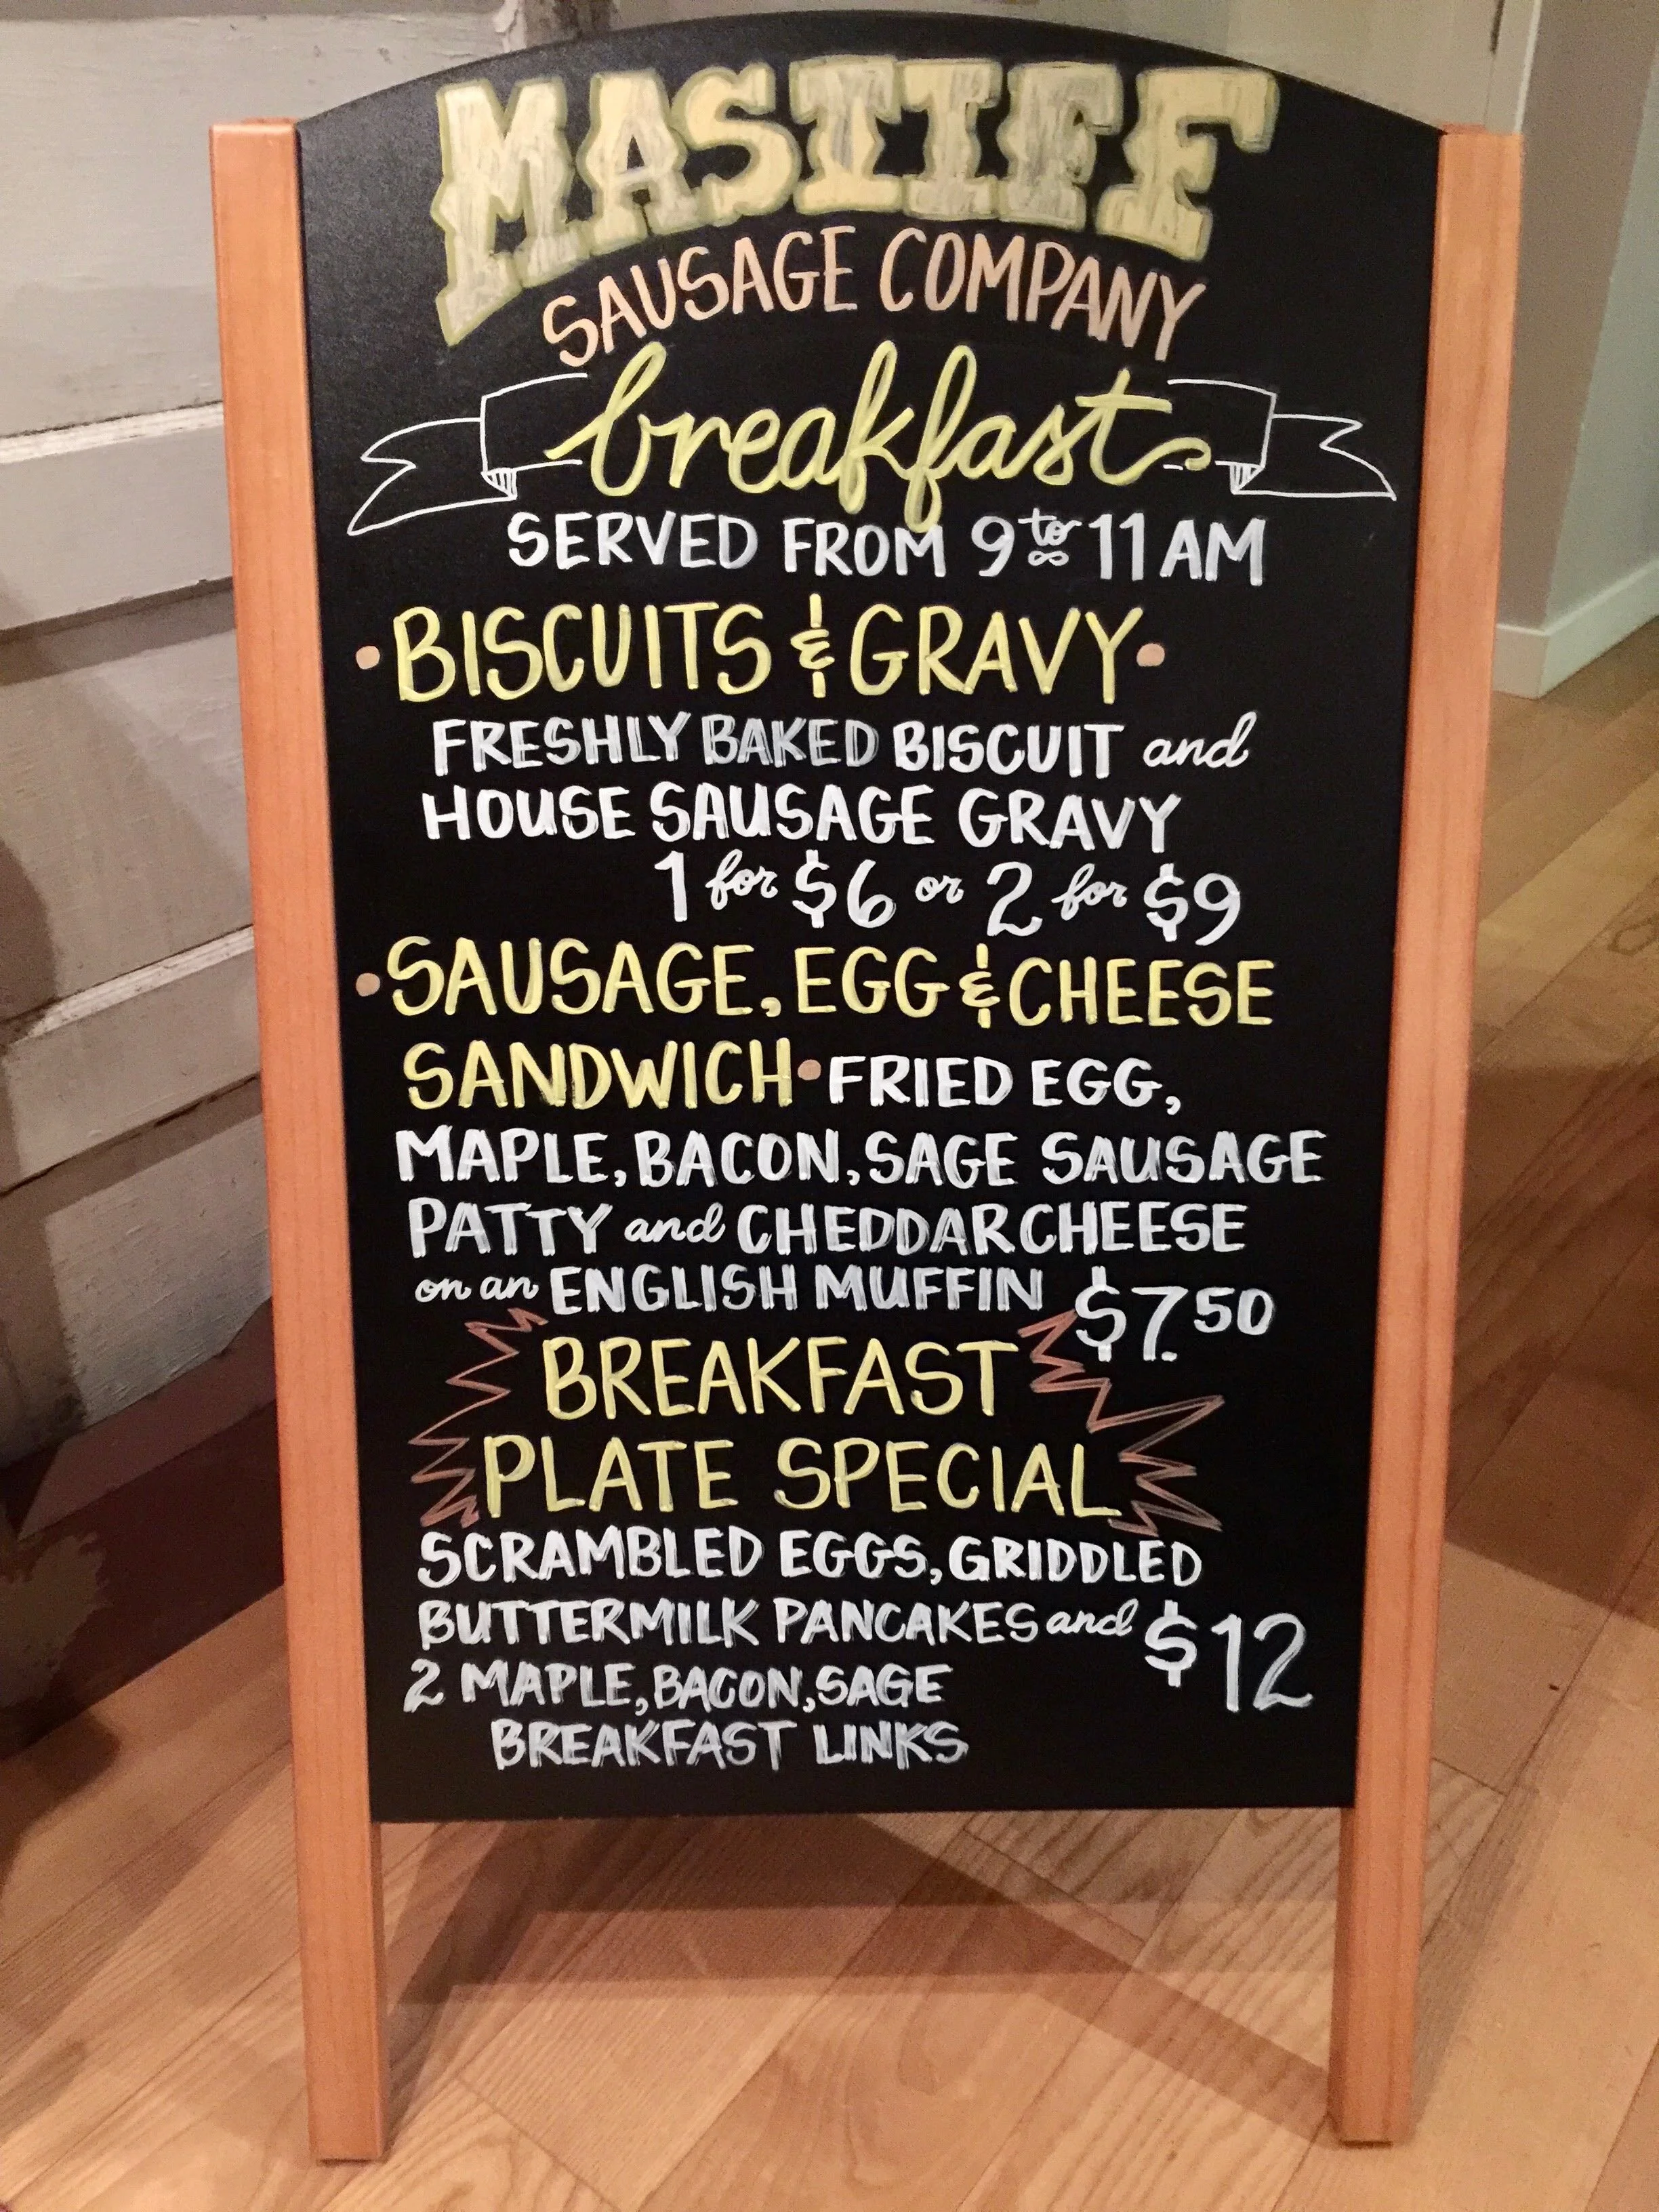 MASTIFF
SAUSAGE COMPANY
breakfast
SERVED FROM 9 to 11 AM
• BISCUITS & GRAVY •
FRESHLY BAKED BISCUIT and
HOUSE SAUSAGE GRAVY
1 for $6 or 2 for $9
• SAUSAGE, EGG & CHEESE
SANDWICH • FRIED EGG,
MAPLE, BACON, SAGE SAUSAGE
PATTY and CHEDDAR CHEESE
on an ENGLISH MUFFIN $7.50
BREAKFAST
PLATE SPECIAL
SCRAMBLED EGGS, GRIDDLED
BUTTERMILK PANCAKES and $12
2 MAPLE, BACON, SAGE
BREAKFAST LINKS